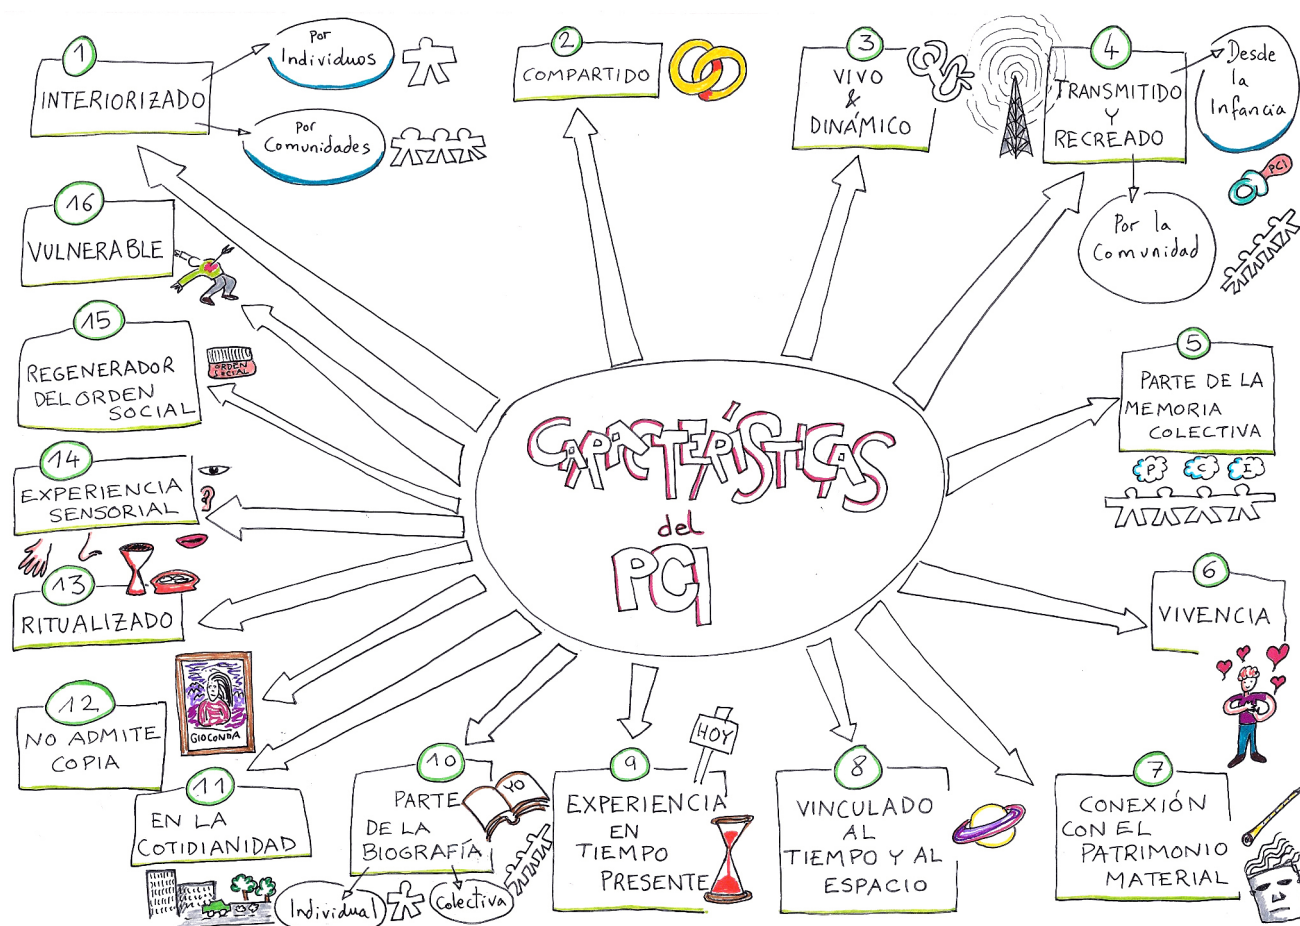 CARACTERÍSTICAS
del
PCI
1
INTERIORIZADO
Por
Individuos
Por
Comunidades
2
COMPARTIDO
3
VIVO
&
DINÁMICO
4
TRANSMITIDO
Y
RECREADO
Desde
la
Infancia
PCI
Por la
Comunidad
5
PARTE DE LA
MEMORIA
COLECTIVA
P C I
6
VIVENCIA
7
CONEXIÓN
CON EL
PATRIMONIO
MATERIAL
8
VINCULADO
AL
TIEMPO Y AL
ESPACIO
HOY
9
EXPERIENCIA
EN
TIEMPO
PRESENTE
10
PARTE
DE LA
BIOGRAFÍA
YO
Individual
Colectiva
11
EN LA
COTIDIANIDAD
12
NO ADMITE
COPIA
GIOCONDA
13
RITUALIZADO
14
EXPERIENCIA
SENSORIAL
15
REGENERADOR
DEL ORDEN
SOCIAL
ORDEN
SOCIAL
16
VULNERABLE